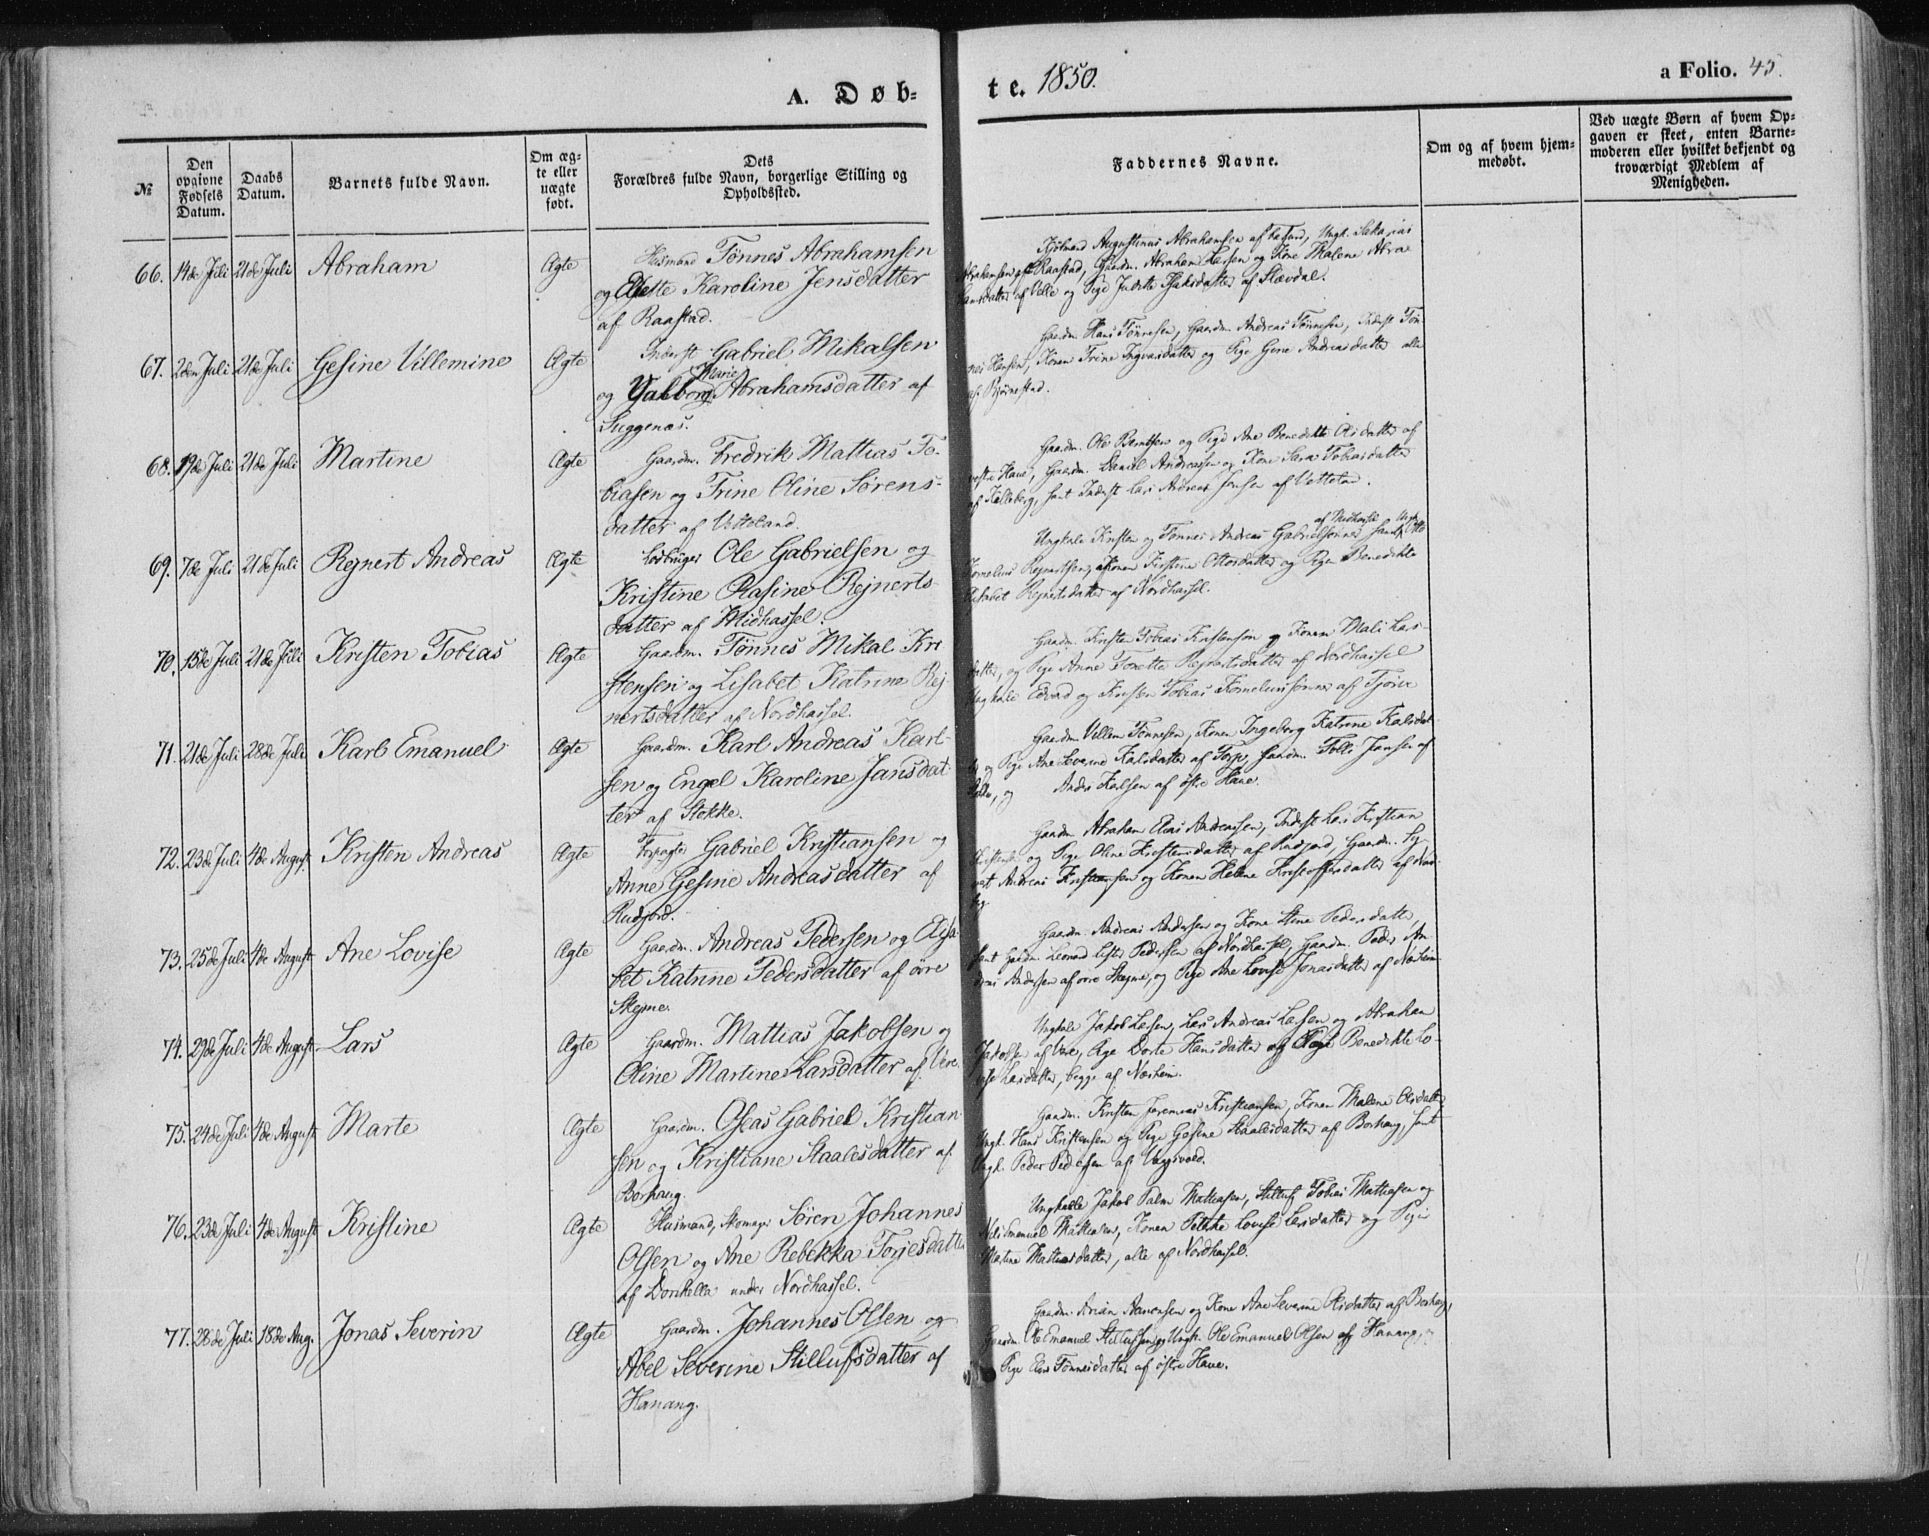 A. Døb-
te. 1850.
a Folio. 45.
№
Den opgivne Fødsels Datum.
Daabs Datum.
Barnets fulde Navn.
Om ægte eller uægte født.
Dets Forældres fulde Navn, borgerlige Stilling og Opholdssted.
Faddernes Navne.
Om og af hvem hjem-
medøbt.
Ved uægte Børn af hvem Op-
gaven er skeet, enten Barne-
moderen eller hvilket bekjendt og
troværdigt Medlem af
Menigheden.
66. 14de Juli 21de Juli Abraham Ægte Husmand Tønnes Abrahamsen
og Elisette Karoline Jensdatter
af Raastad.
Augustinus Abrahamsen af
Abrahamsen af Raastad, Gaardm. Abraham Larsen og Kone Malene Abra-
hamsdatter af Velle og Pige Isaksdatter af
67. 2den Juli 21de Juli Gesine Villemine Ægte Inderst Gabriel Mikalsen
Marie
og Valborg Abrahamsdatter af
Siggenæs.
Gaardm. Hans Tønnesen, Gaardm. Andreas Tønnesen, Inderst Tøn-
nes Hansen, Konen Trine Ingvasdatter og Pige Andreasdatter alle
af Bjørnestad.
68. 19de Juli 21de Juli Martine Ægte Gaardm. Fredrik Mattias To-
biasen og Trine Oline Sørens-
datter af Vetteland.
Gaardm. Ole Berntsen og Pige Ane Benedikte Olsdatter af
vestre Haue, Gaardm. Daniel Andreassen og Kone Sara Tobiasdatter
af Kalleberg, samt Inderst Lars Andreas Jensen af Vetteland.
69. 7de Juli 21de Juli Rejnert Andreas Ægte Ole Gabrielsen og
Kristine Rasine Rejnerts-
datter af Midhassel.
Ungkarle Kristen og Tønnes Andreas Gabrielsønner af Midhassel samt Ungk. Otto
Kornelius Rejnertsen, Konen Kirstine Ottosdatter og Pige Benedikte
Elisabet Rejnertsdatter af Nordhassel.
70. 15de Juli 21de Juli Kristen Tobias Ægte Gaardm. Tønnes Mikal Kri-
stensen og Lisabet Katrine Rej-
nertsdatter af Nordhassel.
Gaardm. Kristen Tobias Kristensen og Konen Mali Lars-
datter, og Pige Anne Tonette Rejnertsdatter af Nordhassel
Ungkarle Edvard og Kristen Tobias Korneliussønner af Tjørve
71. 21de Juli 28de Juli Karl Emanuel Ægte Gaardm. Karl Andreas Karl-
sen og Engel Karoline Jansdat-
ter af Stokke.
Gaardm. Villem Tønnesen, Konen Ingeborg Katrine Karlsdat-
ter og Pige Ane Severine Karlsdatter af Torp, Gaardm. Tolli Jansen af
Stokke, og Anders Karlsen af østre Haue.
72. 23de Juli 4de August Kristen Andreas Ægte Forpagter Gabriel Kristiansen og
Anne Gesine Andreasdatter af
Rudjord.
Gaardm. Abraham Elias Andreassen, Inderst Lars Kristian
Kristensen og Pige Oline Kristensdatter af Rudjord, Gaardm. Sy-
vert Andreas Kristiansen og Konen Helene Kristoffersdatter af
73. 25de Juli 4de August Ane Lovise Ægte Gaardm. Andreas Pedersen og Elisa-
bet Katrine Pedersdatter af øvre
Skejme.
Gaardm. Andreas Andersen og Kone Stine Pedersdatter,
samt Gaardm. Leonard Pedersen af Nordhassel, Gaardm. Peder An-
dreas Andersen af øvre Skejme, og Pige Ane Lovise Jonasdatter af Næsheim
74. 29de Juli 4de August Lars Ægte Gaardm. Mattias Jakobsen og
Oline Martine Larsdatter af Vere.
Ungkarle Jakob Larsen, Lars Andreas Larsen og Abraham
Jakobsen af Vere, Pige Dorte Hansdatter og Pige Benedikte Lo-
vise Larsdatter, begge af Næsheim.
75. 24de Juli 4de August Marte Ægte Gaardm. Oseas Gabriel Kristian-
sen og Kristiane Staalesdatter af
Borhaug.
Gaardm. Kristen Jeremias Kristiansen, Konen Malene Olsdatter
Ungk. Hans Kristensen og Pige Gesine Staalesdatter af Borhaug, samt
Ungk. Peder Pedersen af Vaagsvold.
76. 23de Juli 4de August Kristine Ægte Husmand, Skomager Søren Johannes
Olsen og Ane Rebekka Torjesdatter
af Dorthella under Nordhassel.
Ungkarle Jakob Palm Mattiasen, Stilluf Tobias Mattiasen og
Nils Emanuel Mattiasen, Konen Lovise Larsdatter og Pige
Martine Mattiasdatter, alle af Nordhassel.
77. 28de Juli 18de Aug. Jonas Severin Ægte Gaardm. Johannes Olsen og
Abel Severine Stillufsdatter af
Hanang.
Gaardm. Arian Aanensen og Kone Ane Severine Olsdatter af Borhaug,
Gaardm. Ole Emanuel Stillufsen og Ungk. Ole Emanuel Olsen af Hanang, og
Pige Elen Tønnesdatter af østre Haue.